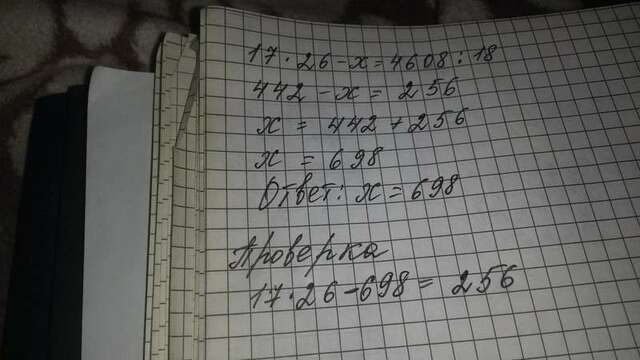 17 · 26 - x = 4608 : 18
442 - x = 256
x = 442 + 256
x = 698
Ответ: x = 698
Проверка
17 · 26 - 698 = 256